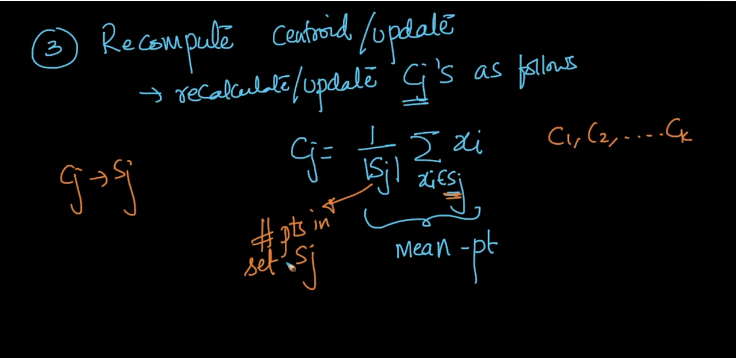 ③ Recompute Centroid/update
→ recalculate/update Cj's as follows
Cj = 1/|Sj| Σ xi∈Sj xi
C1, C2, .... Ck
Cj → Sj
# pts in
set Sj
Mean-pt